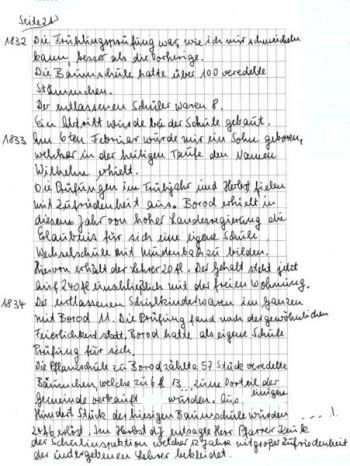 Seite 21
1832 Die Frühlingsprüfung war, wie ich mir schmeicheln
kann, besser als die vorherige.
Die Baumschule hatte über 100 veredelte
Stämmchen.
Der entlassenen Schüler waren 8.
Ein Abtritt wurde bei der Schule gebaut.
1833 Am 6ten Februar wurde mir ein Sohn geboren,
welcher in der heiligen Taufe den Namen
Wilhelm erhielt.
Die Prüfungen im Frühjahr und Herbst fielen
mit Zufriedenheit aus. Borod erhielt in
diesem Jahr von hoher Landesregierung die
Erlaubnis für sich eine eigene Schule,
Wechselschule mit Mudenbach zu bilden.
Hiervon erhält der Lehrer 20 fl. Der Gehalt steht jetzt
auf 240 fl einschließlich mit der freien Wohnung.
1834 Der entlassenen Schulkinder waren im Ganzen
mit Borod 11. Die Prüfung fand nach der gewöhnlichen
Feierlichkeit statt, Borod hatte als eigene Schule
Prüfung für sich.
Die Pflanzschule zu Borod zählte 57 Stück veredelte
Bäumchen, welche zu 6 fl 13 zum Vorteil der
Gemeinde verkauft wurden. Aus einigen
Hundert Stück der hiesigen Baumschule wurden
erlöst. Im Herbst entsagte Herr Pfarrer
der Schulinspektion welcher 12 Jahre mit großer Zufriedenheit
der untergebenen Lehrer bekleidet.